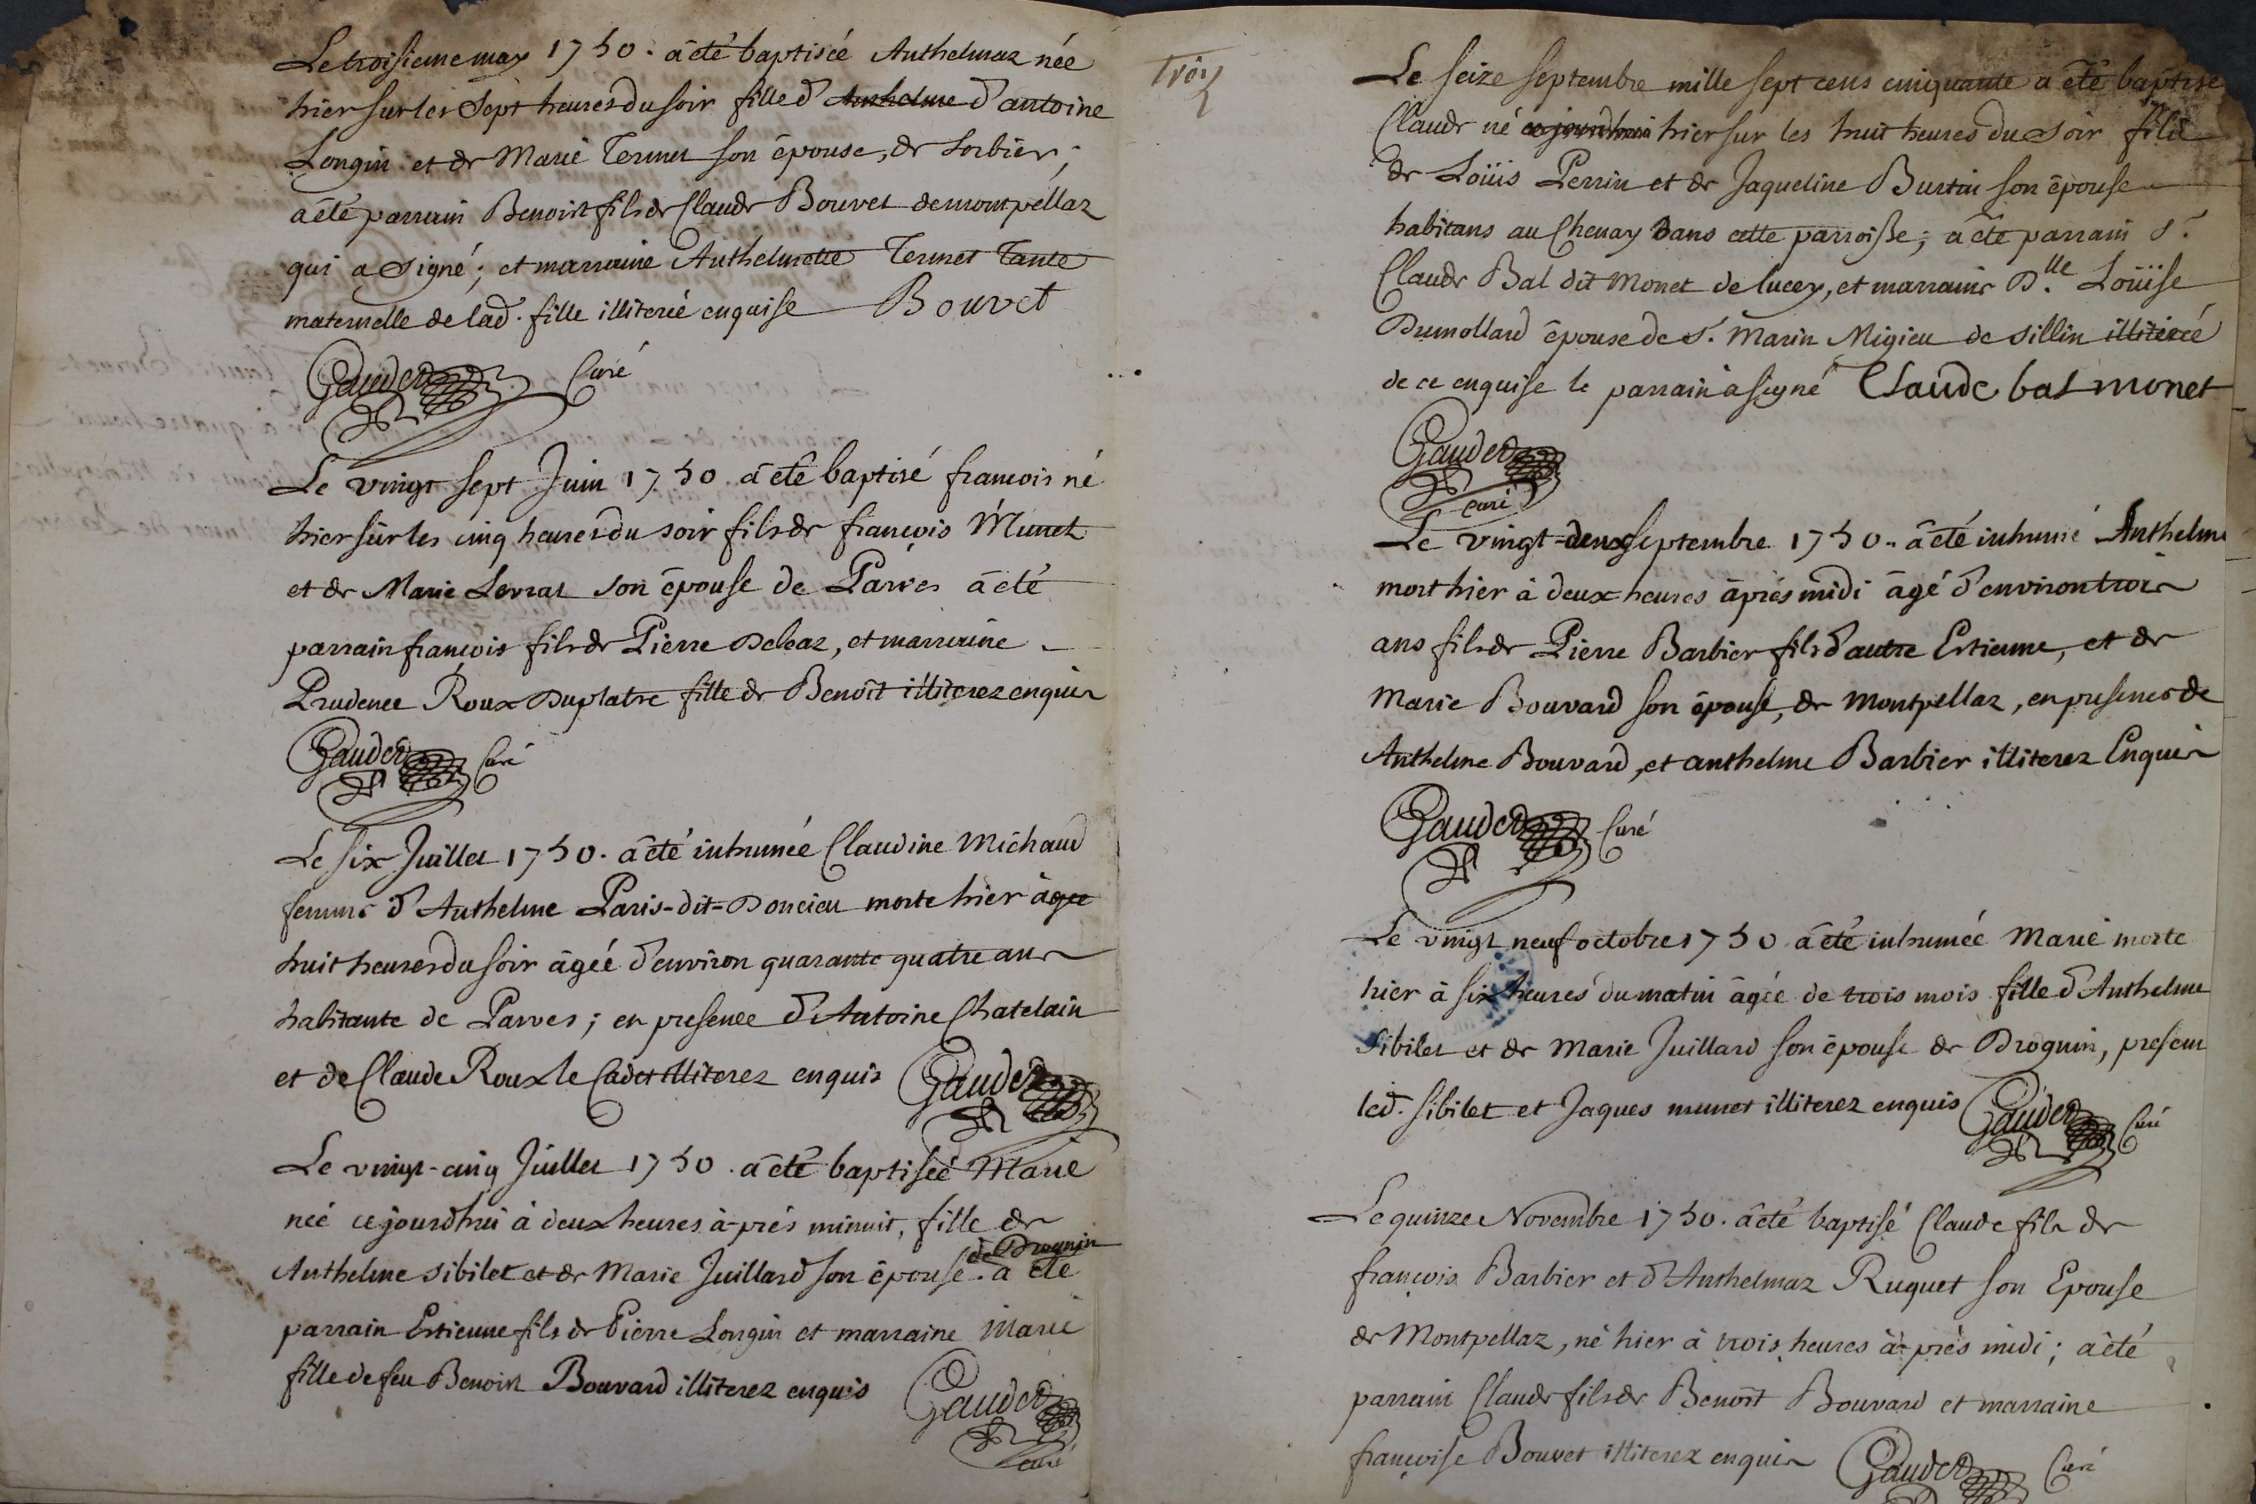 Le troisieme may 1750. a été baptisée Anthelmaz née
hier sur les sept heures du soir fille d' Anthelme d'antoine
Longin et de Marie Termet son épouse, de Sorbier;
a été parrain Benoist fils de Claude Bouvet de montpellaz
qui a signé; et marraine Anthelmette Termet Tante
maternelle de lad. fille illiterée enquise Bouvet
Gaudet Curé
Le vingt sept Juin 1750 a été baptisé francois né
hier sur les cinq heures du soir fils de francois Munet
et de Marie Levrat son épouse de Parves a été
parrain francois fils de Pierre Deleaz, et marraine
Prudence Roux Duplatre fille de Benoît illiterez enquis
Gaudet Curé
Le six Juillet 1750. a été inhumée Claudine Michaud
femme d'Anthelme Paris-dit-Doncieu morte hier agée
huit heures du soir agée d'environ quarante quatre ans
habitante de Parves; en presence d'Antoine Chatelain
et de Claude Roux le Cadet illiterez enquis Gaudet
Le vingt-cinq Juillet 1750. a été baptisée Marie
née ce jourdhui à deux heures à-prés minuit, fille de
de Drognin
Anthelme Sibilet et de Marie Juillard son épouse. a été
parrain Estienne fils de Pierre Longin et marraine Marie
fille de feu Benoist Bouvard illiterez enquis
Gaudet
curé
Trois
Le seize septembre mille sept cens cinquante a été baptisé
Claude né ce jourdhui hier sur les huit heures du soir fils
de Loüis Perrin et de Jaqueline Burtin son épouse
habitans au Chenay Dans cette parroisse; a été parrain S.r
Claude Bal dit Monet de lucey, et marraine D.lle Loüise
Dumollard épouse de S.r Marin Migieu de Sillin illiterée
de ce enquise le parrain a signé Claude bal monet
Gaudet
curé
Le vingt-deux septembre 1750. a été inhumé Anthelme
mort hier à deux heures après midi âgé d'environ trois
ans fils de Pierre Barbier fils d'autre Estienne, et de
Marie Bouvard son épouse, de Montpellaz, en presence de
Anthelme Bouvard, et anthelme Barbier illiterez Enquis
Gaudet Curé
Le vingt neuf octobre 1750 a été inhumée Marie morte
hier à six heures du matin âgée de trois mois fille d'Anthelme
Sibilet et de Marie Juillard son épouse de Drognin, present
led. Sibilet et Jaques munet illiterez enquis Gaudet Curé
Le quinze Novembre 1750. a été baptisé Claude fils de
françois Barbier et d'Anthelmaz Ruguet son Epouse
de Montpellaz, né hier à trois heures à-prés midi; a été
parrain Claude fils de Benoît Bouvard et marraine
françoise Bouvet illiterez enquis Gaudet Curé